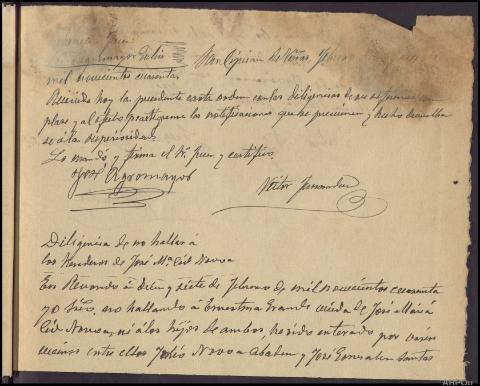 San Ciprian de Viñas, Febrero
mil novecientos cuarenta
Recibida hoy la precedente carta orden con las diligencias de su referencia cum
plase y al efecto practiquense las notificaciones que se previenen y hecho devuelva
se á la superioridad
Lo mandó y firma el Sr. Juez y certifico
José Agromayor
Victor Fernandez
Diligencia de no hallar á
los herederos de José Mª Cid Novoa
En Reboredo á diez y siete de Febrero de mil novecientos cuarenta
yo Srio, no hallando á Ernestina Grande viuda de José Maria
Cid Novoa, ni á los hijos de ambos, he sido enterado por varios
vecinos entre ellos Julio Novoa Abadin y José Gonzalez Santos